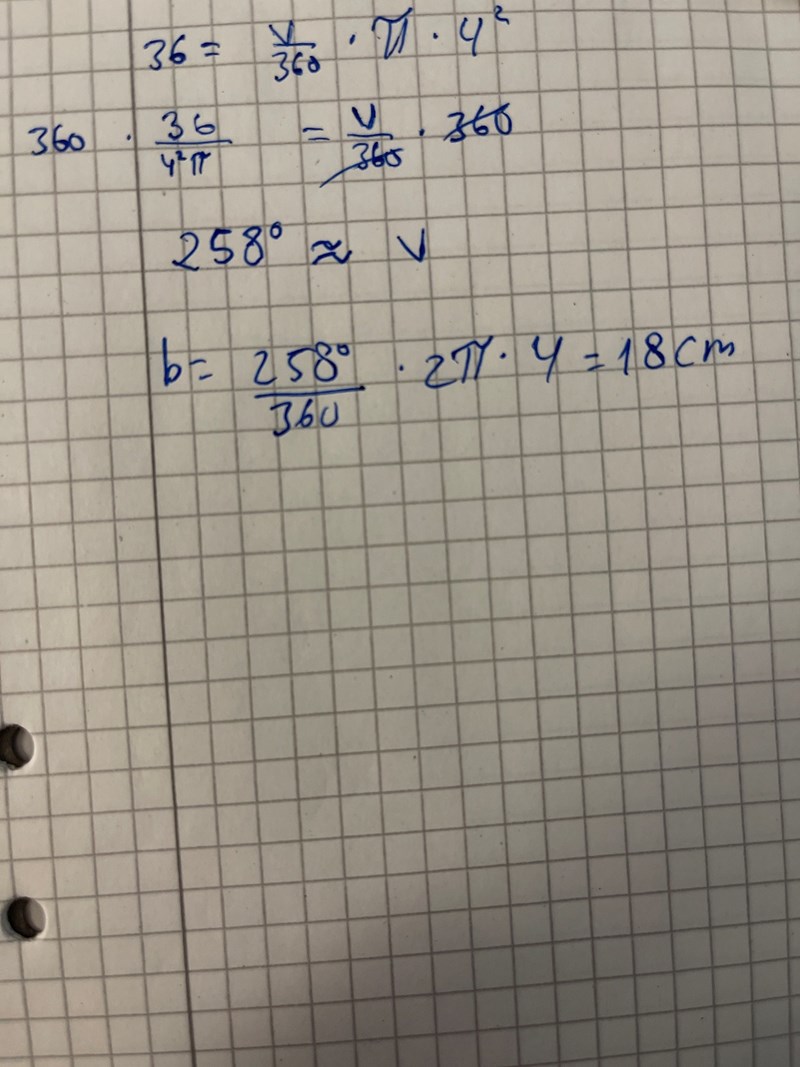 36 = v/360 · π · 4²
360 · 36/4²π = v/360 · 360
258° ≈ v
b = 258°/360 · 2π · 4 = 18 cm